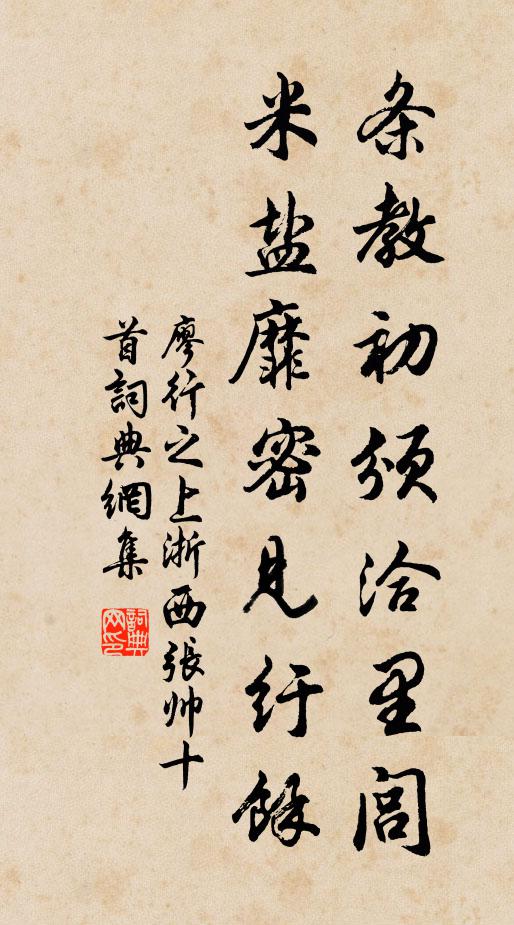 条教初颁洽里闾
米盐靡密见纡馀
廖行之上浙西張帅十
首詞典網集
詞典网印